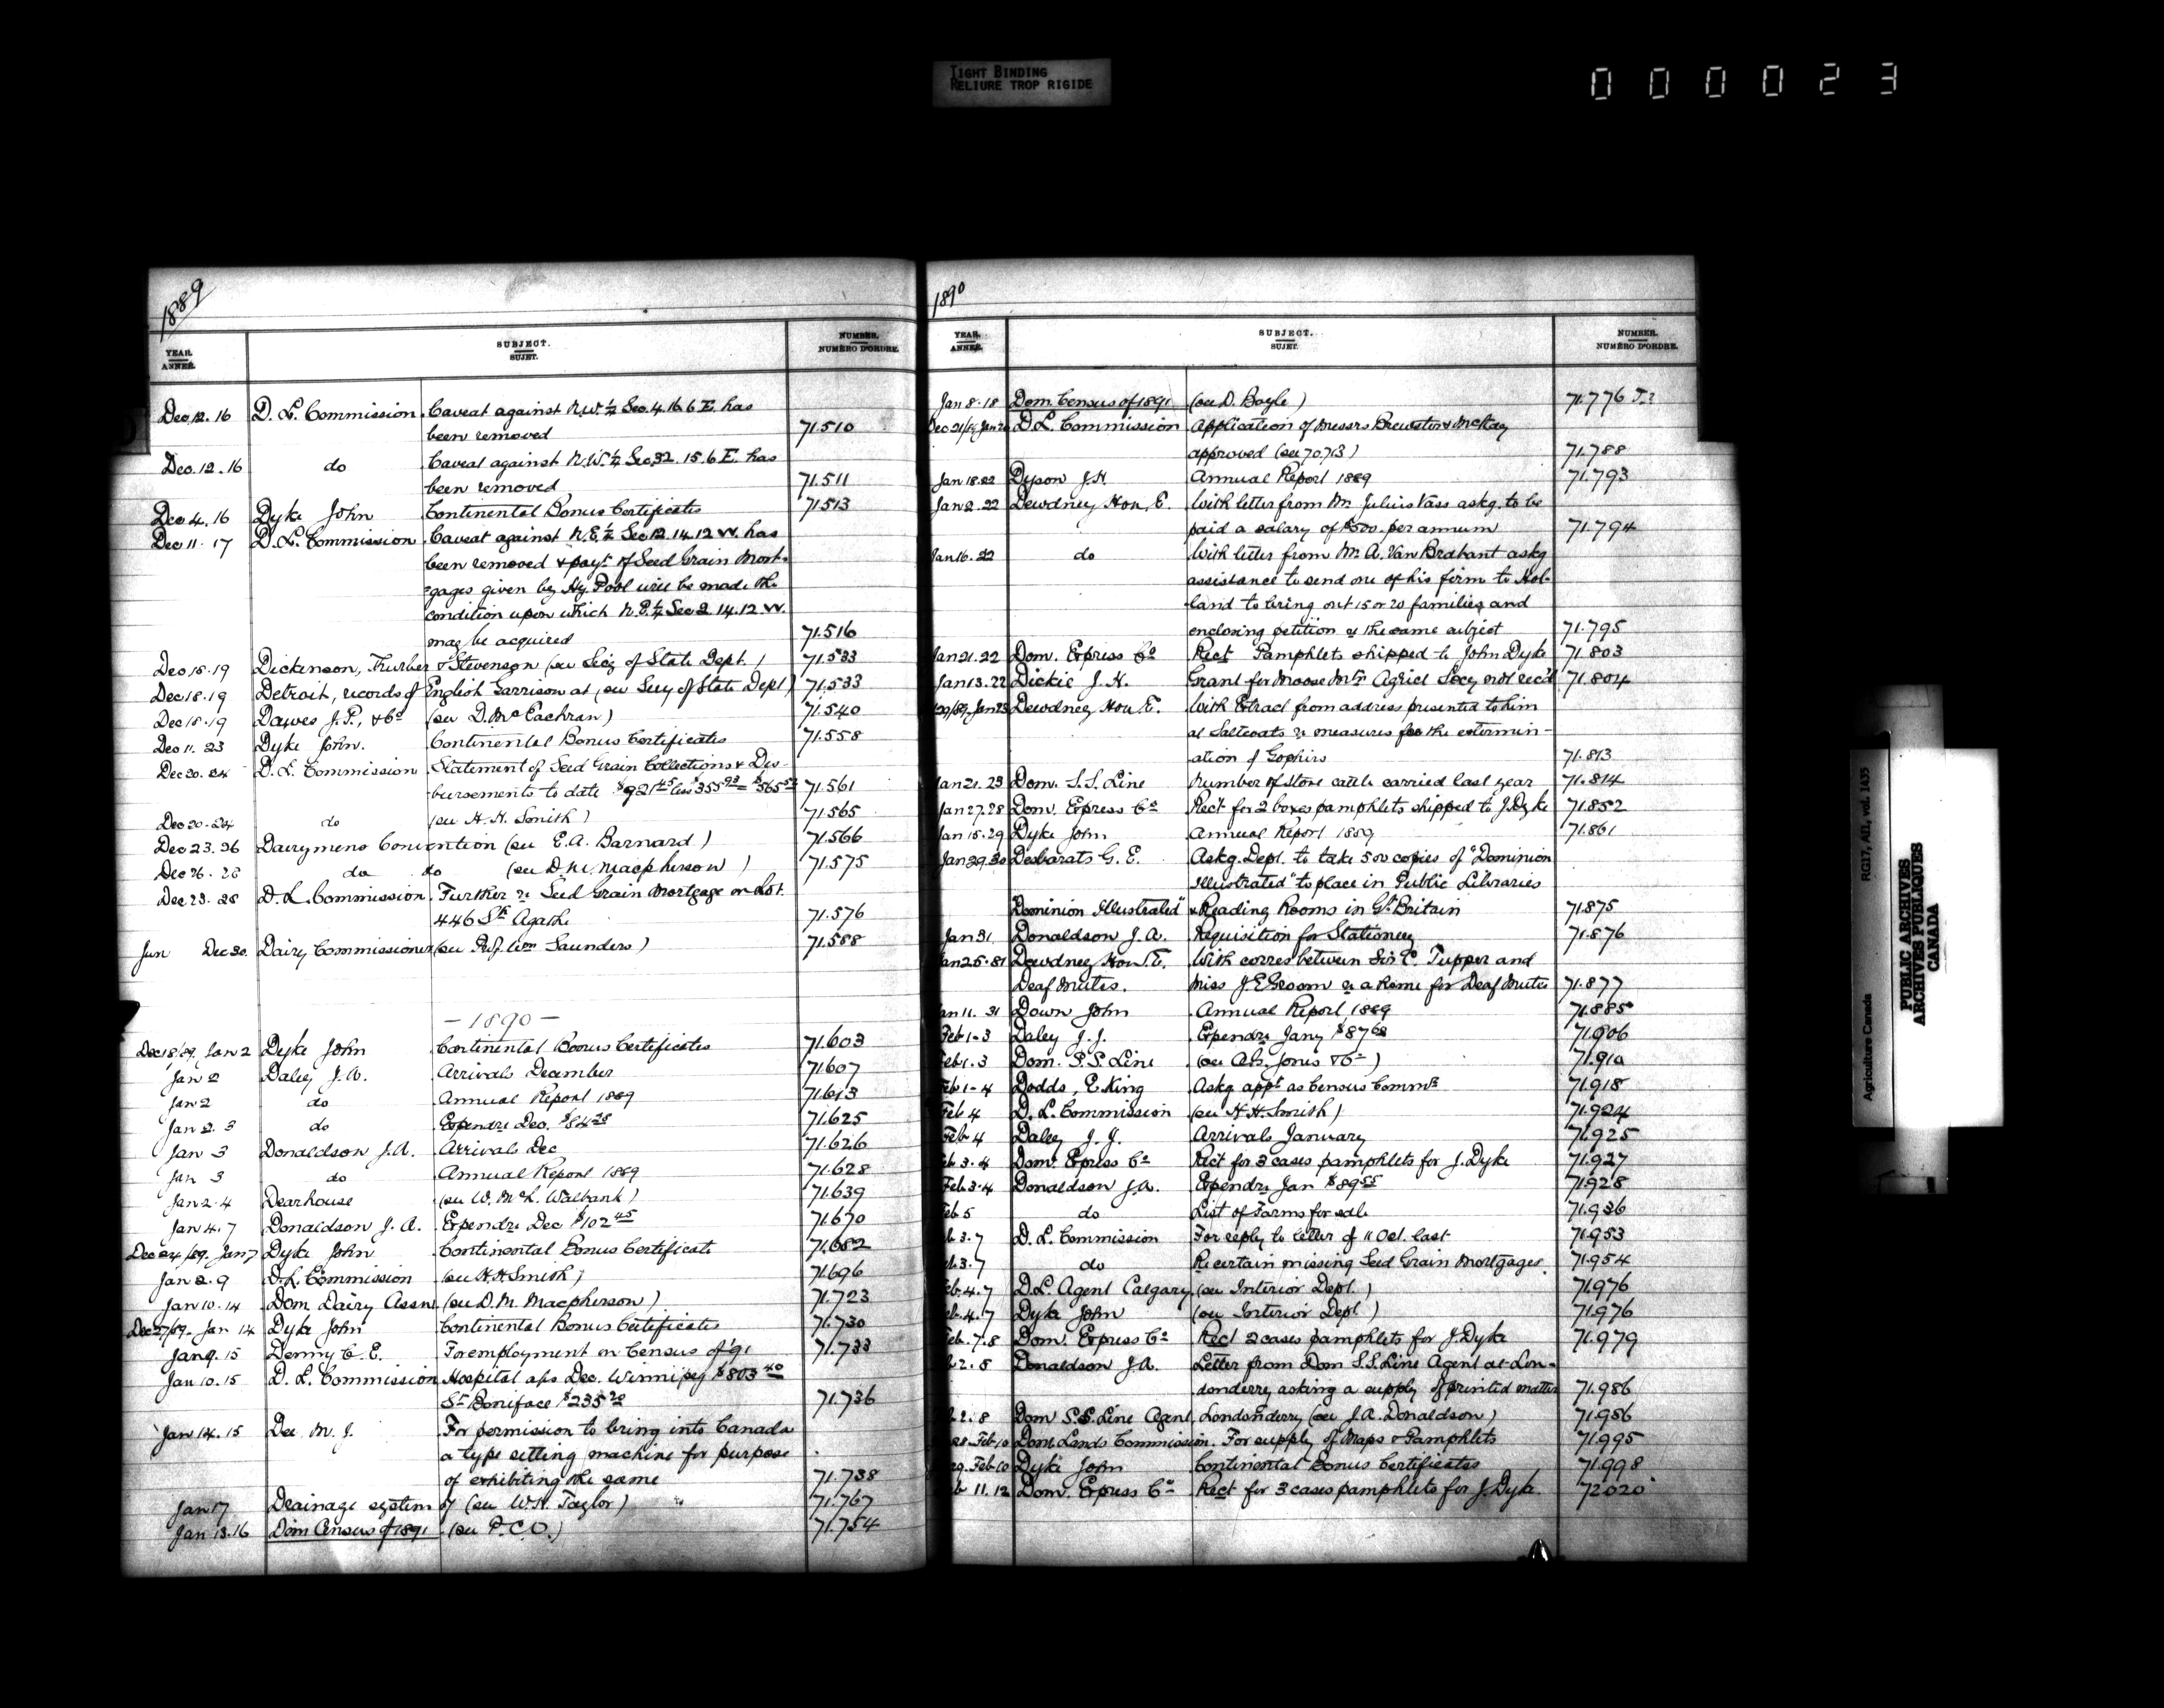 TIGHT BINDING
RELIURE TROP RIGIDE
000023
1889
YEAR. ANNÉE. SUBJECT. SUJET. NUMBER. NUMÉRO D'ORDRE.
Dec. 12. 16 D. L. Commission Caveat against N.W. ¼ Sec. 4. 16. 6 E. has
been removed 71.510
Dec. 12. 16 do Caveat against N.W. ¼ Sec. 32. 15. 6 E. has
been removed 71.511
Dec 4. 16 Dyke John Continental Bonus Certificates 71.513
Dec 11. 17 D. L. Commission Caveat against N.E. ¼ Sec 12. 14. 12 W. has
been removed & payt. of Seed Grain Mort-
gages given by Hy. Pool will be made the
condition upon which N.E. ¼ Sec 2. 14. 12 W.
may be acquired 71.516
Dec 18. 19 Dickinson, Thurber & Stevenson (see Secy of State Dept.) 71.533
Dec 18. 19 Detroit, records of English Garrison at (see Secy of State Dept) 71.533
Dec 18. 19 Dawes J. P., & Co (see D. McEachran) 71.540
Dec 11. 23 Dyke John. Continental Bonus Certificates 71.558
Dec 20. 24 D. L. Commission Statement of Seed Grain Collections & Dis-
bursements to date $921.45 less 355.93 = $565.52 71.561
Dec 20. 24 do (see H. H. Smith) 71.565
Dec 23. 26 Dairymens Convention (see E. A. Barnard) 71.566
Dec 26. 28 do do (see D. M. Macpherson) 71.575
Dec 23. 28 D. L. Commission Further re Seed Grain Mortgage on Lot.
446 Ste Agathe 71.576
Jun Dec 30. Dairy Commissioner (see Prof. Wm Saunders) 71.588
- 1890 -
Dec 18/89, Jan 2 Dyke John Continental Bonus Certificates 71.603
Jan 2 Daley J. A. Arrivals December 71.607
Jan 2 do Annual Report 1889 71.613
Jan 2. 3 do Expendre Dec. $84.28 71.625
Jan 3 Donaldson J. A. Arrivals Dec 71.626
Jan 3 do Annual Report 1889 71.628
Jan 2. 4 Dearhouse (see W. McL. Walbank) 71.639
Jan 4. 7 Donaldson J. A. Expendre Dec $102.45 71.670
Dec 24/89. Jan 7 Dyke John Continental Bonus Certificate 71.682
Jan 2. 9 D. L. Commission (see H. H. Smith) 71.696
Jan 10. 14 Dom Dairy Assn (see D. M. Macpherson) 71.723
Dec 27/89. Jan 14 Dyke John Continental Bonus Certificates 71.730
Jan 9. 15 Denny C. E. For employment on Census of '91 71.733
Jan 10. 15 D. L. Commission Hospital a/cs Dec. Winnipeg $803.40
St Boniface $235.20 71.736
Jan 14. 15 Dee M. J. For permission to bring into Canada
a type setting machine for purpose
of exhibiting the same 71.738
Jan 17 Drainage system of (see W. H. Taylor) 71.767
Jan 13. 16 Dom Census of 1891 (see P. C. O.) 71.754
1890
YEAR. ANNÉE. SUBJECT. SUJET. NUMBER. NUMÉRO D'ORDRE.
Jan 8. 18 Dom. Census of 1891 (see D. Boyle) 71.776
Dec 21/89 Jan D. L. Commission Application of Messrs Brewster & McKay
approved (see 70.713) 71.788
Jan 18. 22 Dyson J. H. Annual Report 1889 71.793
Jan 2. 22 Dewdney Hon. E. With letter from Mr. Julius Vass askg. to be
paid a salary of $500. per annum 71.794
Jan 16. 22 do With letter from Mr. A. Van Brabant askg
assistance to send one of his firm to Hol-
land to bring out 15 or 20 families and
enclosing petition re the same subject 71.795
Jan 21. 22 Dom. Express Co Rect Pamphlets shipped to John Dyke 71.803
Jan 13. 22 Dickie J. H. Grant for Moose Mtn Agricl Socy not rec'd 71.804
Jan 23 Dewdney Hon E. With Extract from address presented to him
at Saltcoats re measures for the extermin-
ation of Gophers 71.813
Jan 21. 23 Dom. S. S. Line Number of store cattle carried last year 71.814
Jan 27. 28 Dom. Express Co Rect for 2 boxes pamphlets shipped to J. Dyke 71.852
Jan 15. 29 Dyke John Annual Report 1889 71.861
Jan 29. 30 Desbarats G. E. Askg. Dept. to take 500 copies of "Dominion
Illustrated" to place in Public Libraries
"Dominion Illustrated" & Reading Rooms in Gt Britain 71.875
Jan 31 Donaldson J. A. Requisition for Stationery 71.876
Jan 25. 31 Dewdney Hon. E. With corres between Sir C. Tupper and
Deaf Mutes. Miss J. E. Groom re a home for Deaf Mutes 71.877
Jan 11. 31 Down John Annual Report 1889 71.885
Feb 1-3 Daley J. J. Expendre Jany $87.68 71.906
Feb 1. 3 Dom. S. S. Line (see A. G. Jones & Co) 71.910
Feb 1-4 Dodds, E. King Askg appt as Census Commr 71.918
Feb 4 D. L. Commission (see H. H. Smith) 71.924
Feb 4 Daley J. J. Arrivals January 71.925
Feb 3. 4 Dom. Express Co Rect for 3 cases pamphlets for J. Dyke 71.927
Feb. 3. 4 Donaldson J. A. Expendre Jan $89.55 71.928
Feb 5 do List of Farms for sale 71.936
Feb 3. 7 D. L. Commission For reply to letter of 11 Oct. last 71.953
Feb. 3. 7 do Re certain missing Seed Grain Mortgages. 71.954
Feb. 4. 7 D. L. Agent Calgary (see Interior Dept.) 71.976
Feb. 4. 7 Dyke John (see Interior Dept.) 71.976
Feb. 7. 8 Dom. Express Co Rect 2 cases pamphlets for J. Dyke 71.979
2. 8 Donaldson J. A. Letter from Dom S. S. Line Agent at Lon-
donderry asking a supply of printed matter 71.986
2. 8 Dom S. S. Line Agent, Londonderry (see J. A. Donaldson) 71.986
Feb 10 Dom. Lands Commission. For supply of Maps & Pamphlets 71.995
Feb 10 Dyke John Continental Bonus Certificates 71.998
Feb 11. 12 Dom. Express Co Rect for 3 cases pamphlets for J. Dyke. 72020
Agriculture Canada RG17, AII, vol. 1435
PUBLIC ARCHIVES
ARCHIVES PUBLIQUES
CANADA